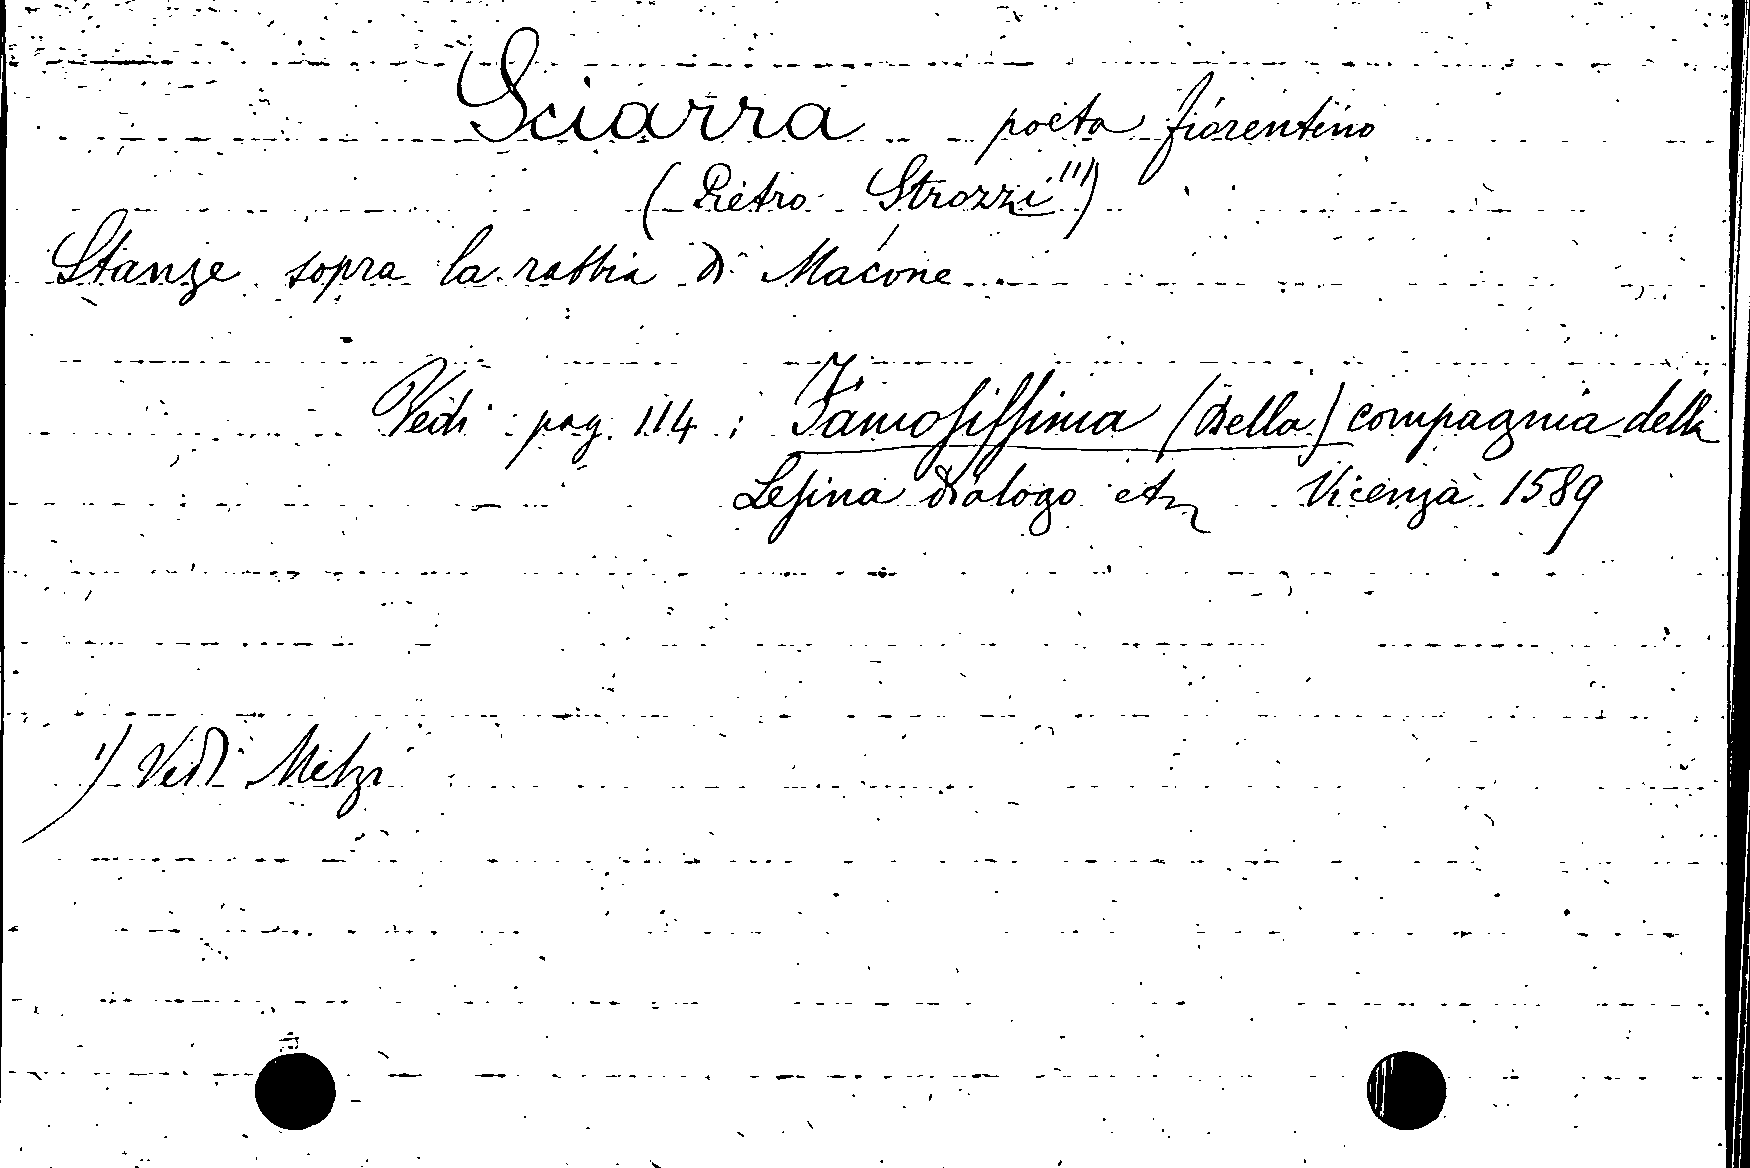 Sciarra poeta fiorentino
(Pietro Strozzi ¹⁾)
Stanze sopra la rabbia di Macone
Vedi pag. 114 : Famosissima (Della) compagnia della
Lesina dialogo etc Vicenza 1589
¹⁾ Vedi Melzi